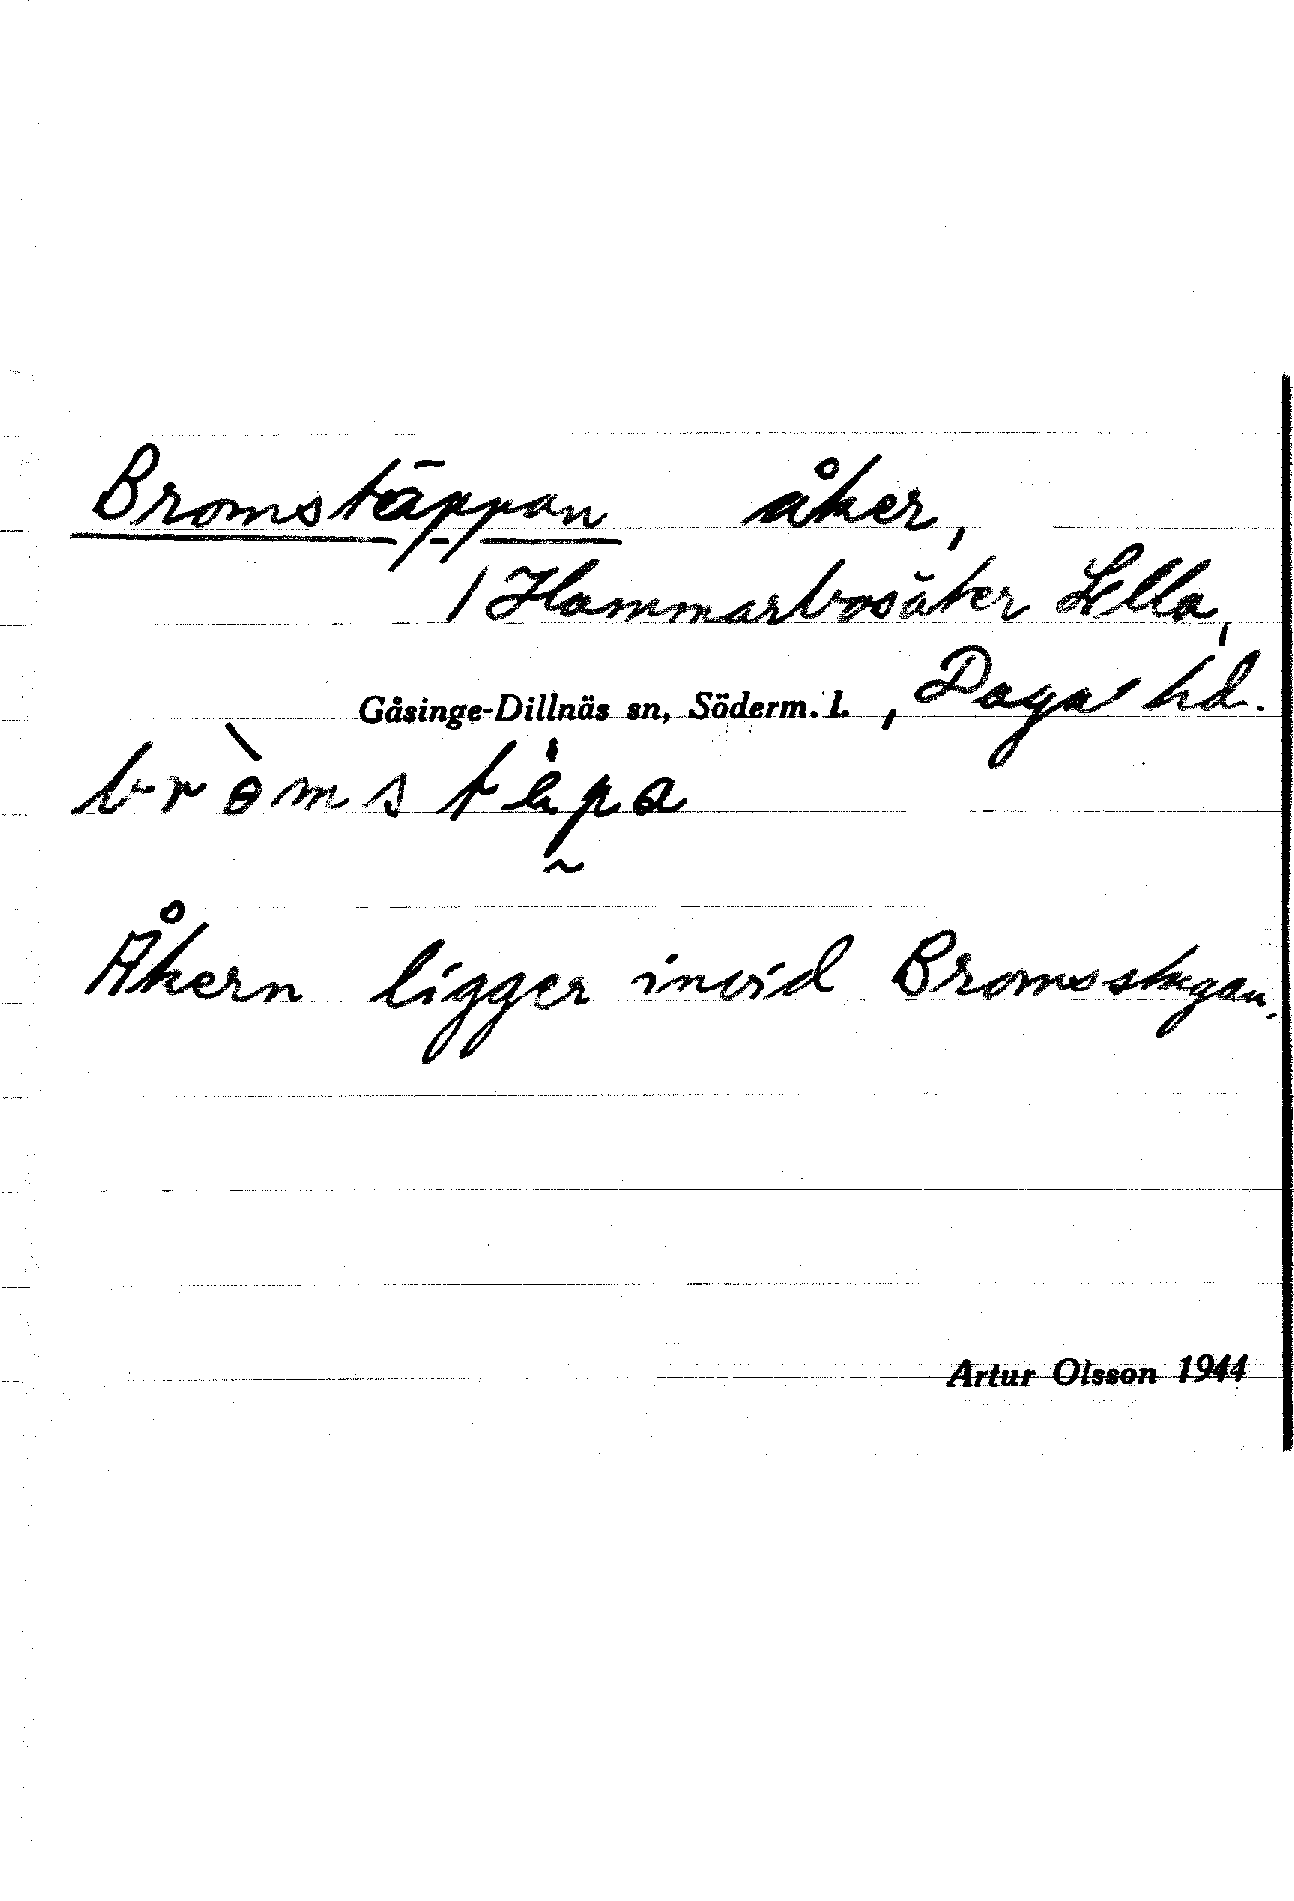 Bromstäppan åker,
/ Hammarbosäter Lilla,
Gåsinge-Dillnäs sn, Söderm. l., Daga hd.
Åkern ligger invid Bromsstugan.
Artur Olsson 1944